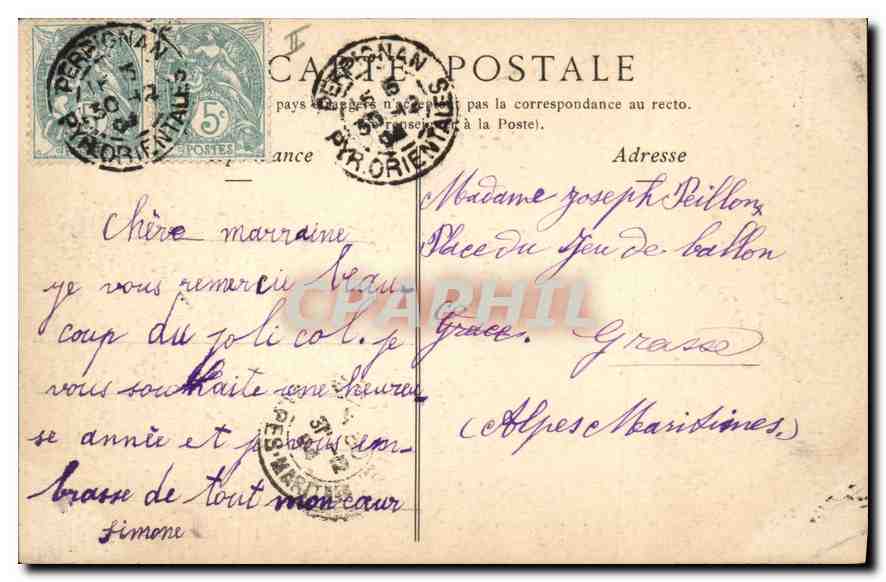 CARTE POSTALE
pays étrangers n'acceptent pas la correspondance au recto.
renseigner à la Poste).
PERPIGNAN
30 -12
PYR. ORIENTALES
5c
POSTES
PERPIGNAN
30 12
PYR. ORIENTALES
Adresse
Chère marraine
je vous remercie beau-
coup du joli col. je
vous souhaite une heureu-
se année et je vous em-
brasse de tout mon cœur
Simone
Madame Joseph Peillon
Place du Jeu de ballon
Grace. Grasse
(Alpes Maritimes.)
31 12
CPAPHIL